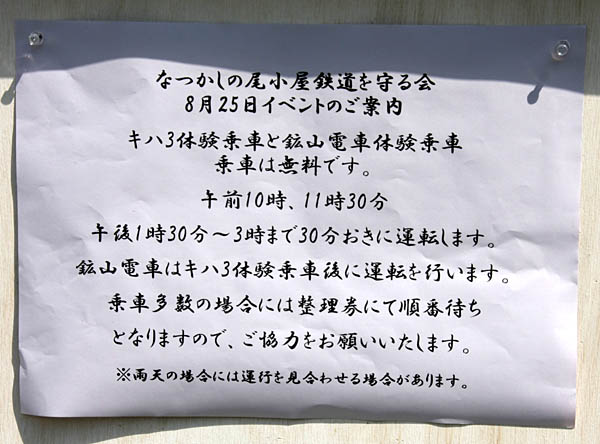 なつかしの尾小屋鉄道を守る会
8月25日イベントのご案内
キハ3体験乗車と鉱山電車体験乗車
乗車は無料です。
午前10時、11時30分
午後1時30分～3時まで30分おきに運転します。
鉱山電車はキハ3体験乗車後に運転を行います。
乗車多数の場合には整理券にて順番待ち
となりますので、ご協力をお願いいたします。
※雨天の場合には運行を見合わせる場合があります。